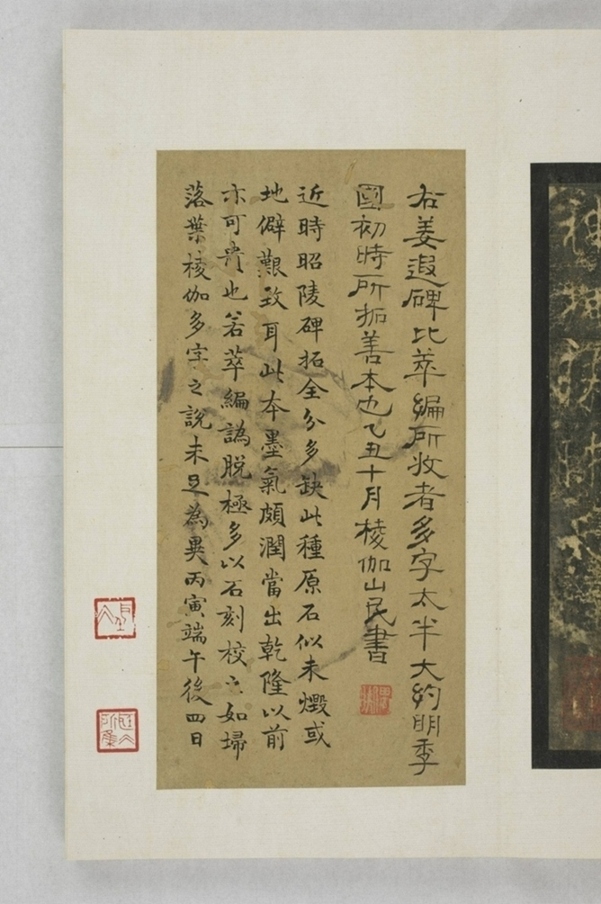 右姜遐碑比萃編所收者多字太半大約明季
國初時所拓善本也乙丑十月棱伽山民書
近時昭陵碑拓全分多缺此種原石似未燬或
地僻艱致耳此本墨氣頗潤當出乾隆以前
亦可貴也若萃編譌脫極多以石刻校之如埽
落葉棱伽多字之說未足為異丙寅端午後四日